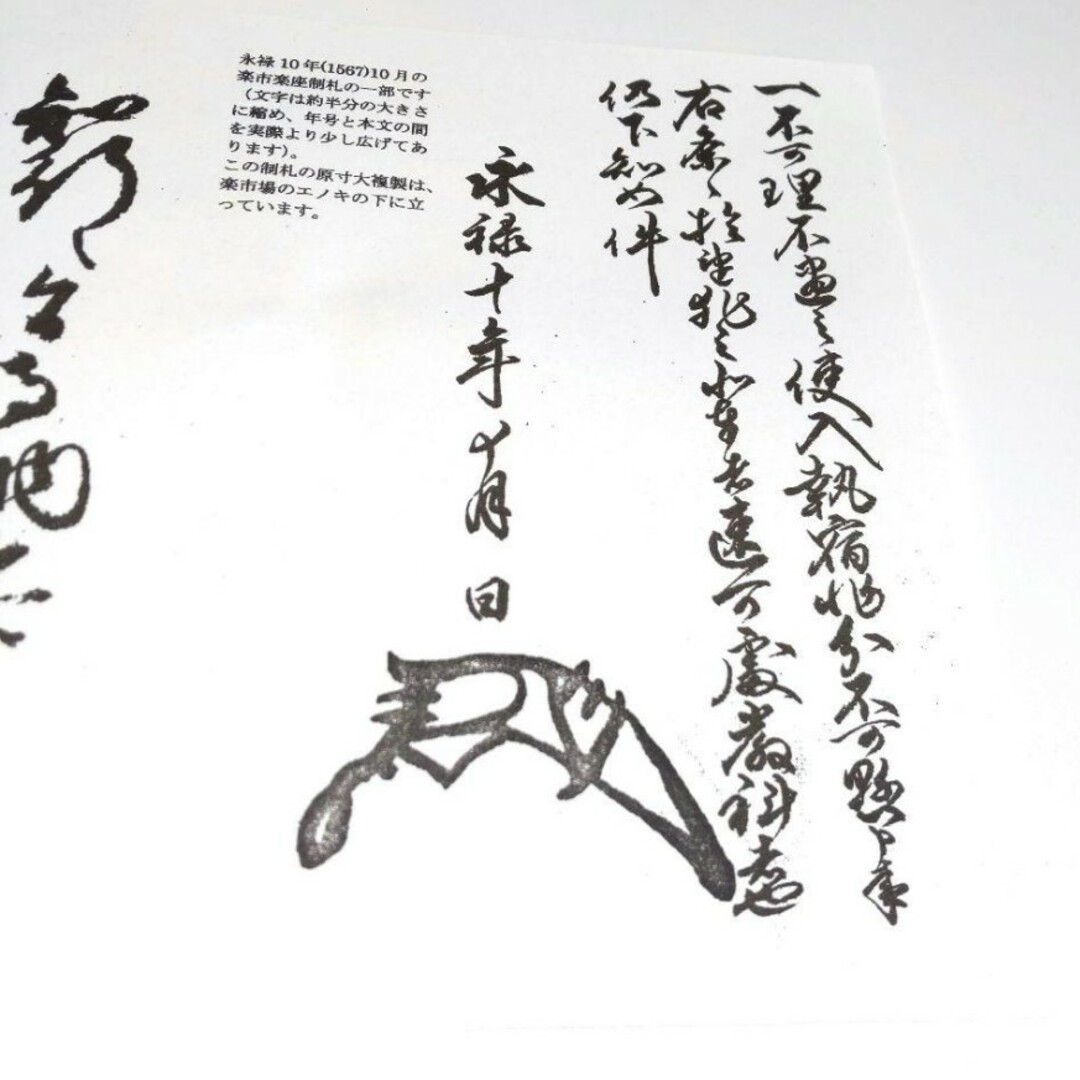 一不可理不盡之使入執宿非分不可懸申事
右條々於違犯之輩者速可處嚴科者也
仍下知如件
永禄十年十月 日
永禄10年(1567)10月の
楽市楽座制札の一部です
(文字は約半分の大きさ
に縮め、年号と本文の間
を実際より少し広げてあ
ります)。
この制札の原寸大複製は、
楽市場のエノキの下に立
っています。